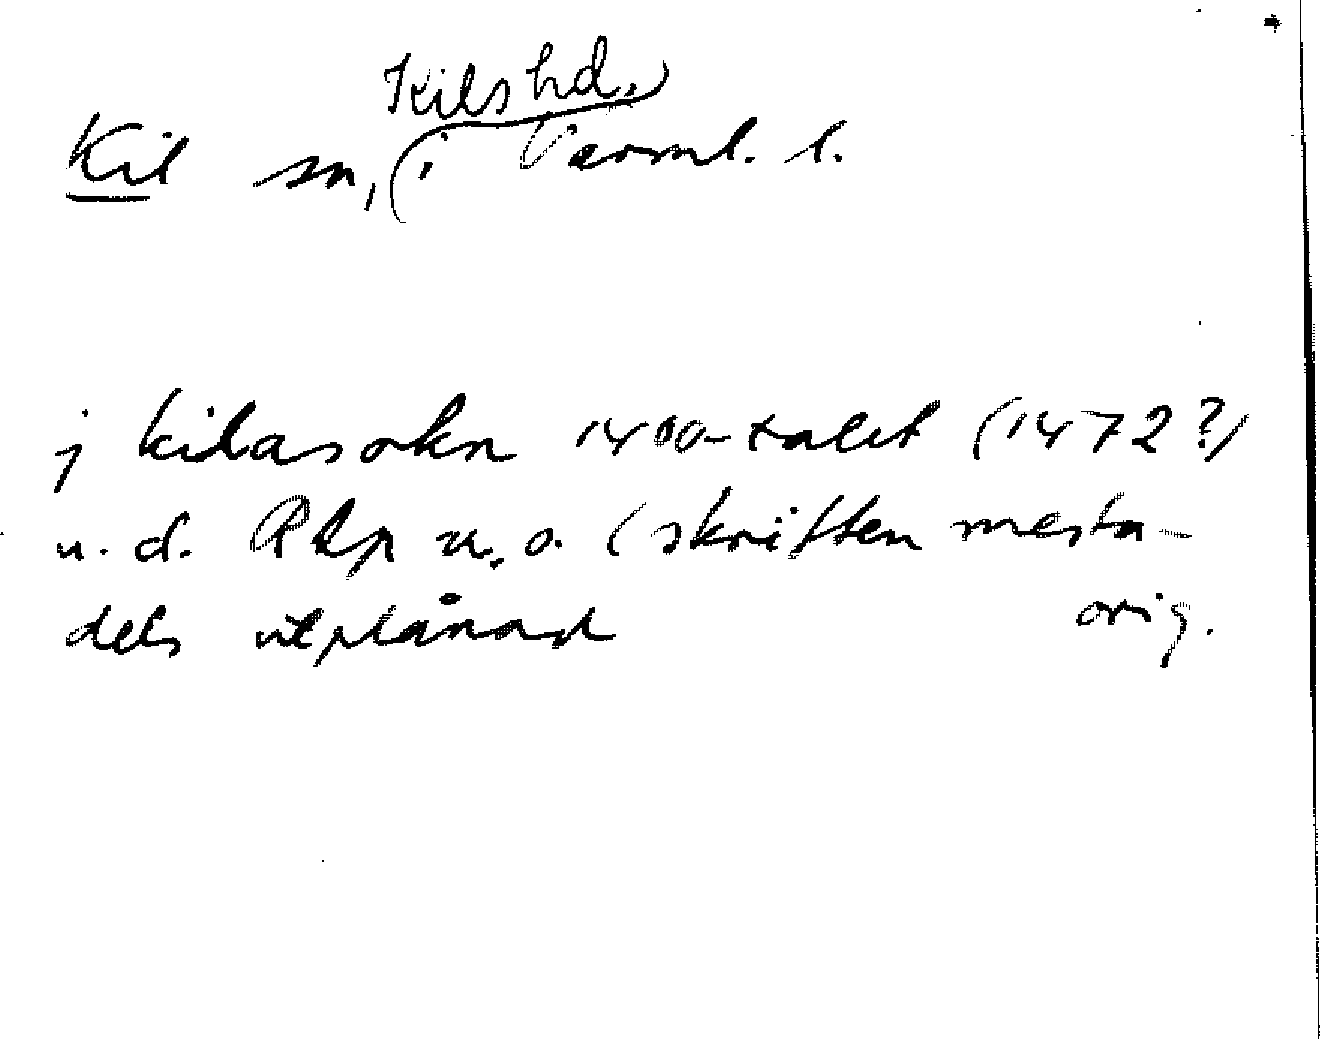 Kils hd.
Kil sn, i Värml. l.
j kilasokn 1400-talet (1472?)
u. d. RAp u. o. (skriften mesta-
dels utplånad orig.